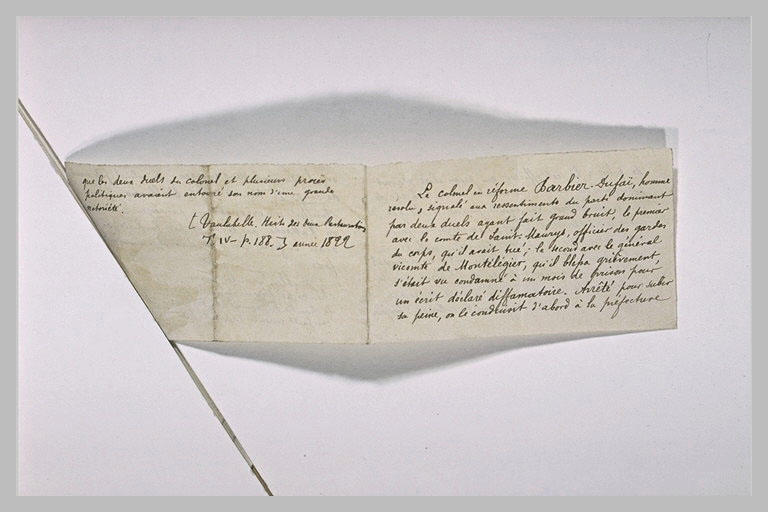 que les deux duels du colonel et plusieurs procès
politiques avaient entouré son nom d'une grande
notoriété.
[Vaulabelle, Hist. des deux Restaurations
T. IV – p. 188.] année 1822
Le colonel en réforme Barbier-Dufaï, homme
résolu, signalé aux ressentiments du parti dominant
par deux duels ayant fait grand bruit, le premier
avec le comte de Saint-Maurys, officier des gardes
du corps, qu'il avait tué; le second avec le général
vicomte de Montélégier, qu'il blessa grièvement,
s'était vu condamné à un mois de prison pour
un écrit déclaré diffamatoire. Arrêté pour subir
sa peine, on le conduisit d'abord à la préfecture